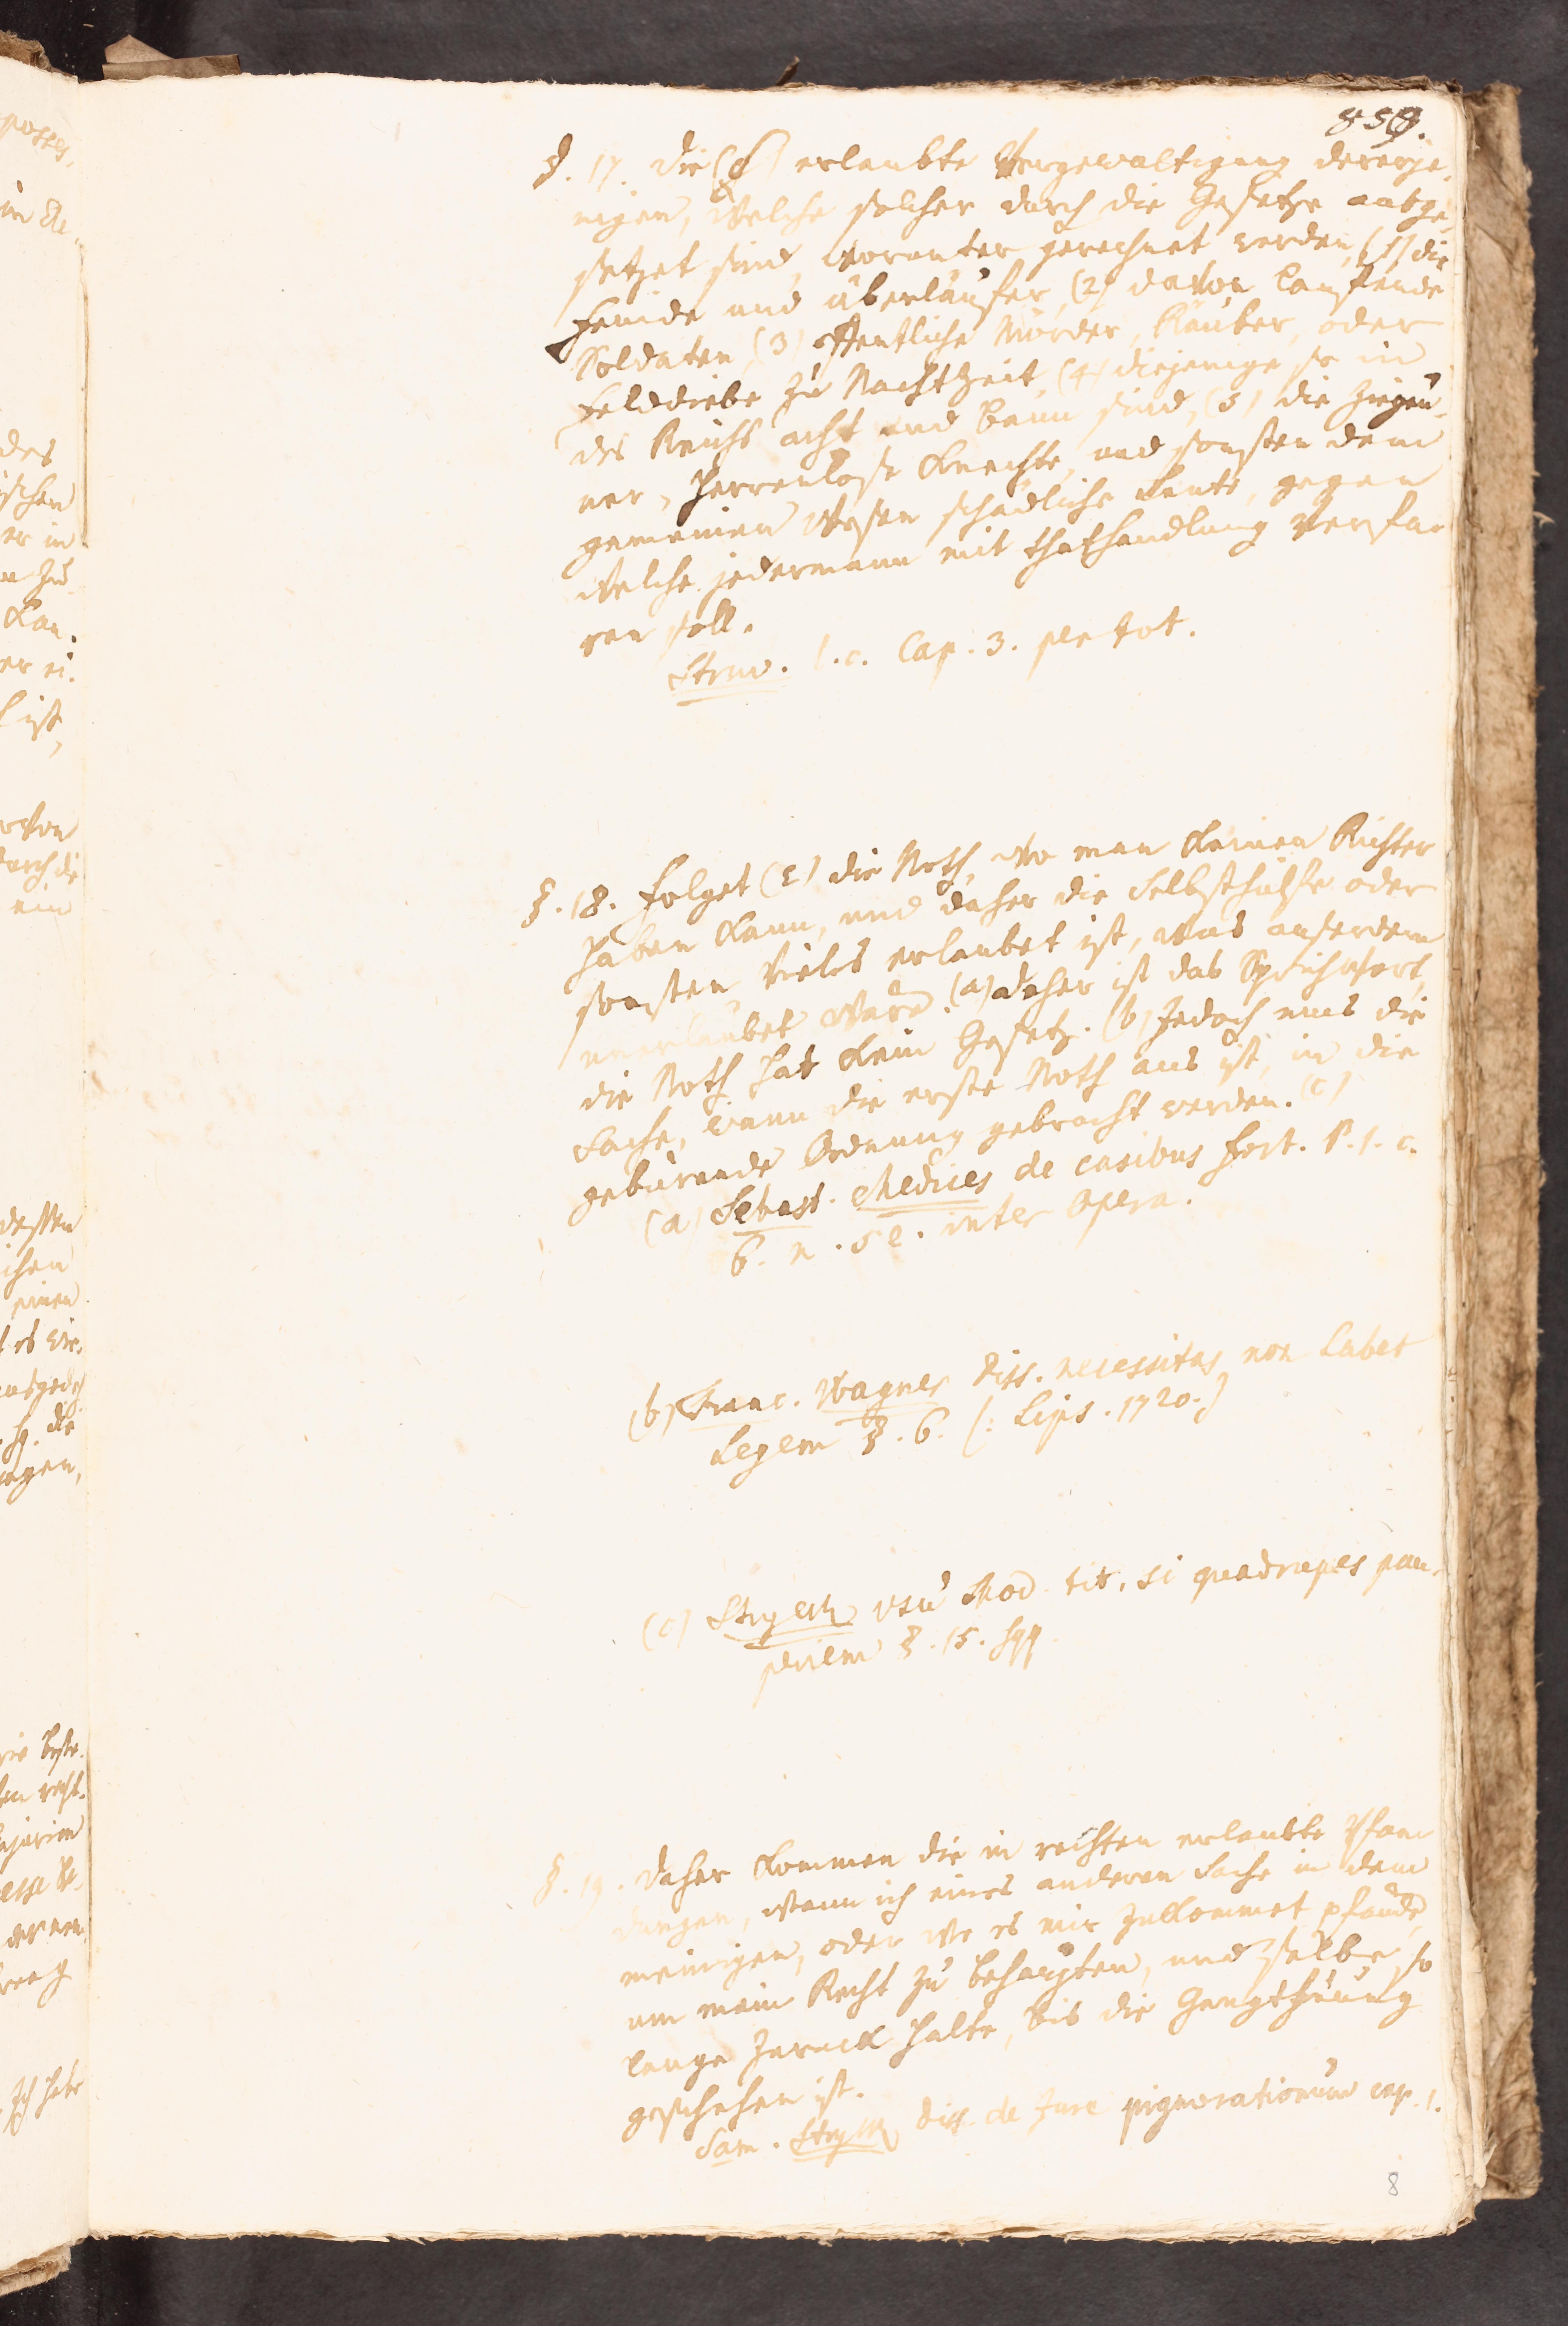 859.
§. 17. die (δ) erlaubte Vergewaltigung dererje-
nigen, welche solcher durch die Gesetze ausge-
setzet sind, worunter gerechnet werden, (1) die
Feinde und überläufer, (2) davon lauffende
Soldaten, (3) offentliche Mörder, Räuber, oder
Felddiebe zu Nachtzeit, (4) diejenige so in
des Reichs acht und bann sind, (5) die Ziegeu-
ner, herrenlose Knechte, und sonsten dem
gemeinen Wesen schädliche Leute, gegen
welche jedermann mit thathandlung verfa-
ren soll.
Struv. l. c. Cap. 3. per tot.
§. 18. Folget (ε) die Noth, wo man keinen Richter
haben kann, und daher die Selbsthülfe oder
sonsten vieles erlaubet ist, was auserdem
unerlaubet wäre. (a) daher ist das Sprichwort,
die Noth hat kein Gesetz. (b) Jedoch mus die
Sache, wann die erste Noth aus ist, in die
gebürende Ordnung gebracht werden. (c)
(a) Sebast. Medices de casibus fort. P. 1. c.
6. n. 52. inter Opera.
(b) Franc. Wagner Diss. necessitas non habet
Legem §. 6. (: Lips. 1720.)
(c) Stryck usu Mod. tit. si quadrupes pau-
periem §. 15. sqq.
§. 19. Daher kommen die in rechten erlaubte Pfan-
dungen, wann ich eines anderen Sache in dem
meinigen, oder wo es mir zukommet pfände,
um mein Recht zu behaupten, und selbe so
lange zuruck halte, bis die Genugthuung
geschehen ist.
Sam. Stryck Diss. de Jure pignorationum cap. 1.
8